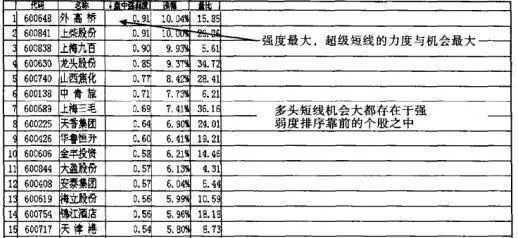 代码 名称 ↓盘中强弱度 涨幅 量比
1 600648 外高桥 0.91 10.04% 15.85
2 600841 上柴股份 0.91 10.00%
3 600838 上海九百 0.90 9.93% 5.61
4 600630 龙头股份 0.85 9.37% 34.72
5 600740 山西焦化 0.77 8.42% 28.41
6 600138 中青旅 0.71 7.73% 6.21
7 600689 上海三毛 0.69 7.41% 36.16
8 600225 天香集团 0.64 6.90% 24.01
9 600426 华鲁恒升 0.60 6.41% 19.21
10 600606 金丰投资 0.58 6.21% 14.46
11 600844 大盈股份 0.57 6.13% 4.31
12 600408 安泰集团 0.57 6.04% 5.44
13 600619 海立股份 0.56 5.99% 10.59
14 600754 锦江酒店 0.56 5.96% 18.18
15 600717 天津港 0.54 5.80% 8.73
强度最大，超级短线的力度与机会最大
多头短线机会大都存在于强
弱度排序靠前的个股之中